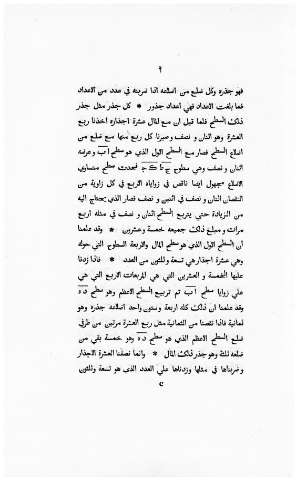 ٩
فهو جذره وكل ضلع من اضلاعه اذا ضربته في عدد من الاعداد
فما بلغت الاعداد فهي اعداد جذور * كل جذر مثل جذر
ذلك السطح فلما قيل ان مع المال عشرة اجذاره اخذنا ربع
العشرة وهو اثنان و نصف وصيرنا كل ربع منها مع ضلع من
اضلاع السطح فصار مع السطح الاول الذي هو سطح اب
اربعة سطوح متساوية
الاضلاع مجهول ايضا ناقص في زواياه الاربع في كل زاوية من
النقصان اثنان و نصف في اثنين و نصف فصار الذي يحتاج اليه
من الزيادة حتي يتربع السطح اثنان و نصف في مثله اربع
مرات و مبلغ ذلك جميعه خمسة وعشرين * وقد علمنا
ان السطح الاول الذي هو سطح المال والاربعة السطوح التي حوله
وهي عشرة اجذار هي تسعة وثلثون من العدد * فاذا زدنا
عليها الخمسة و العشرين التي هي المربعات الاربع التي هي
علي زوايا سطح اب تم تربيع السطح الاعظم وهو سطح ده
وقد علمنا ان ذلك كله اربعة وستون واحد اضلاعه جذره وهو
ثمانية فاذا نقصنا من الثمانية مثل ربع العشرة مرتين من طرفي
ضلع السطح الاعظم الذي هو سطح ده وهو خمسة بقي من
ضلعه ثلثة وهو جذر ذلك المال * وانما نصفنا العشرة الاجذار
وضربناها في مثلها وزدناها علي العدد الذي هو تسعة وثلثون